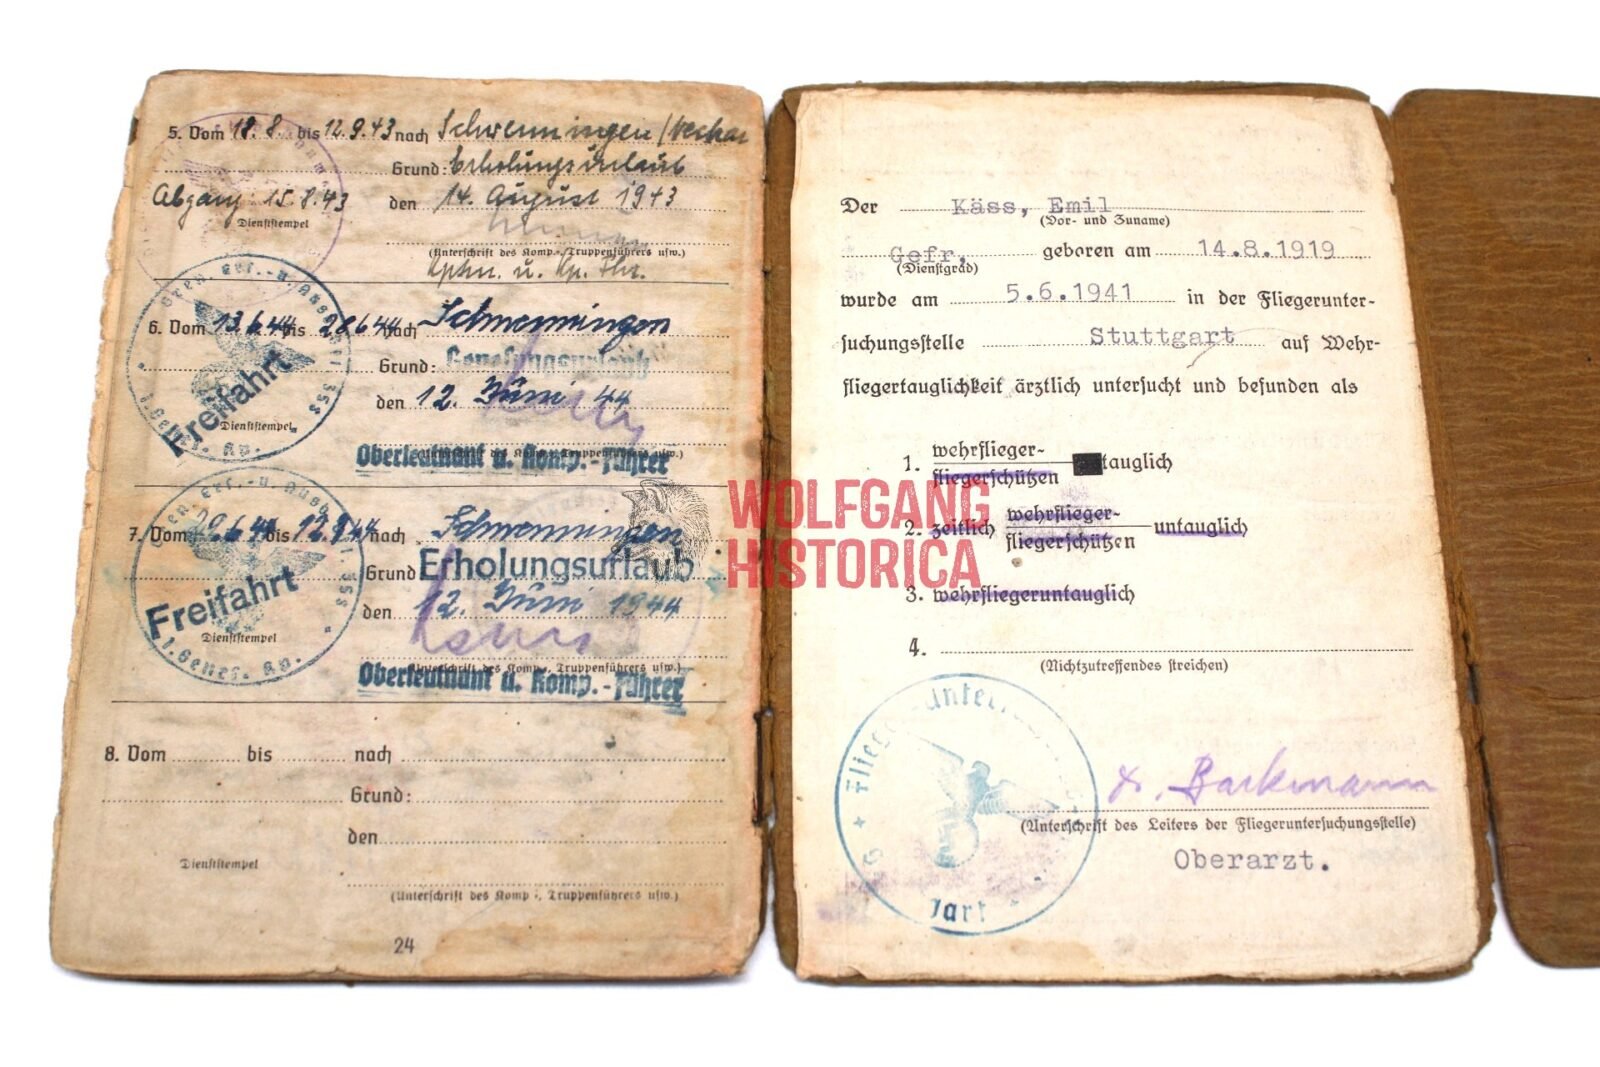 5. Vom 18.8. bis 12.9.43 nach Schwenningen/Neckar
Grund: Erholungsurlaub
Abgang 15.8.43 den 14. August 1943
Dienststempel
(Unterschrift des Komp., Truppenführers usw.)
Hptm. u. Kp. Fhr.
6. Vom 13.6.44 bis 28.6.44 nach Schwenningen
Grund: Genesungsurlaub
Freifahrt
den 12. Juni 44
Dienststempel
(Unterschrift des Komp., Truppenführers usw.)
Oberleutnant u. Komp.-Führer
7. Vom 29.6.44 bis nach Schwenningen
Grund Erholungsurlaub
Freifahrt
den 12. Juni 1944
Dienststempel
1. Genes. Kp.
(Unterschrift des Komp., Truppenführers usw.)
Oberleutnant u. Komp.-Führer
8. Vom bis nach
Grund:
den
Dienststempel
(Unterschrift des Komp., Truppenführers usw.)
24
Der Käss, Emil
(Vor- und Zuname)
Gefr. geboren am 14.8.1919
(Dienstgrad)
wurde am 5.6.1941 in der Fliegerunter-
suchungsstelle Stuttgart auf Wehr-
fliegertauglichkeit ärztlich untersucht und befunden als
1. wehrflieger-
fliegerschützen tauglich
2. zeitlich wehrflieger-
fliegerschützen untauglich
3. wehrfliegeruntauglich
4.
(Nichtzutreffendes streichen)
(Unterschrift des Leiters der Fliegeruntersuchungsstelle)
Oberarzt.
WOLFGANG
HISTORICA